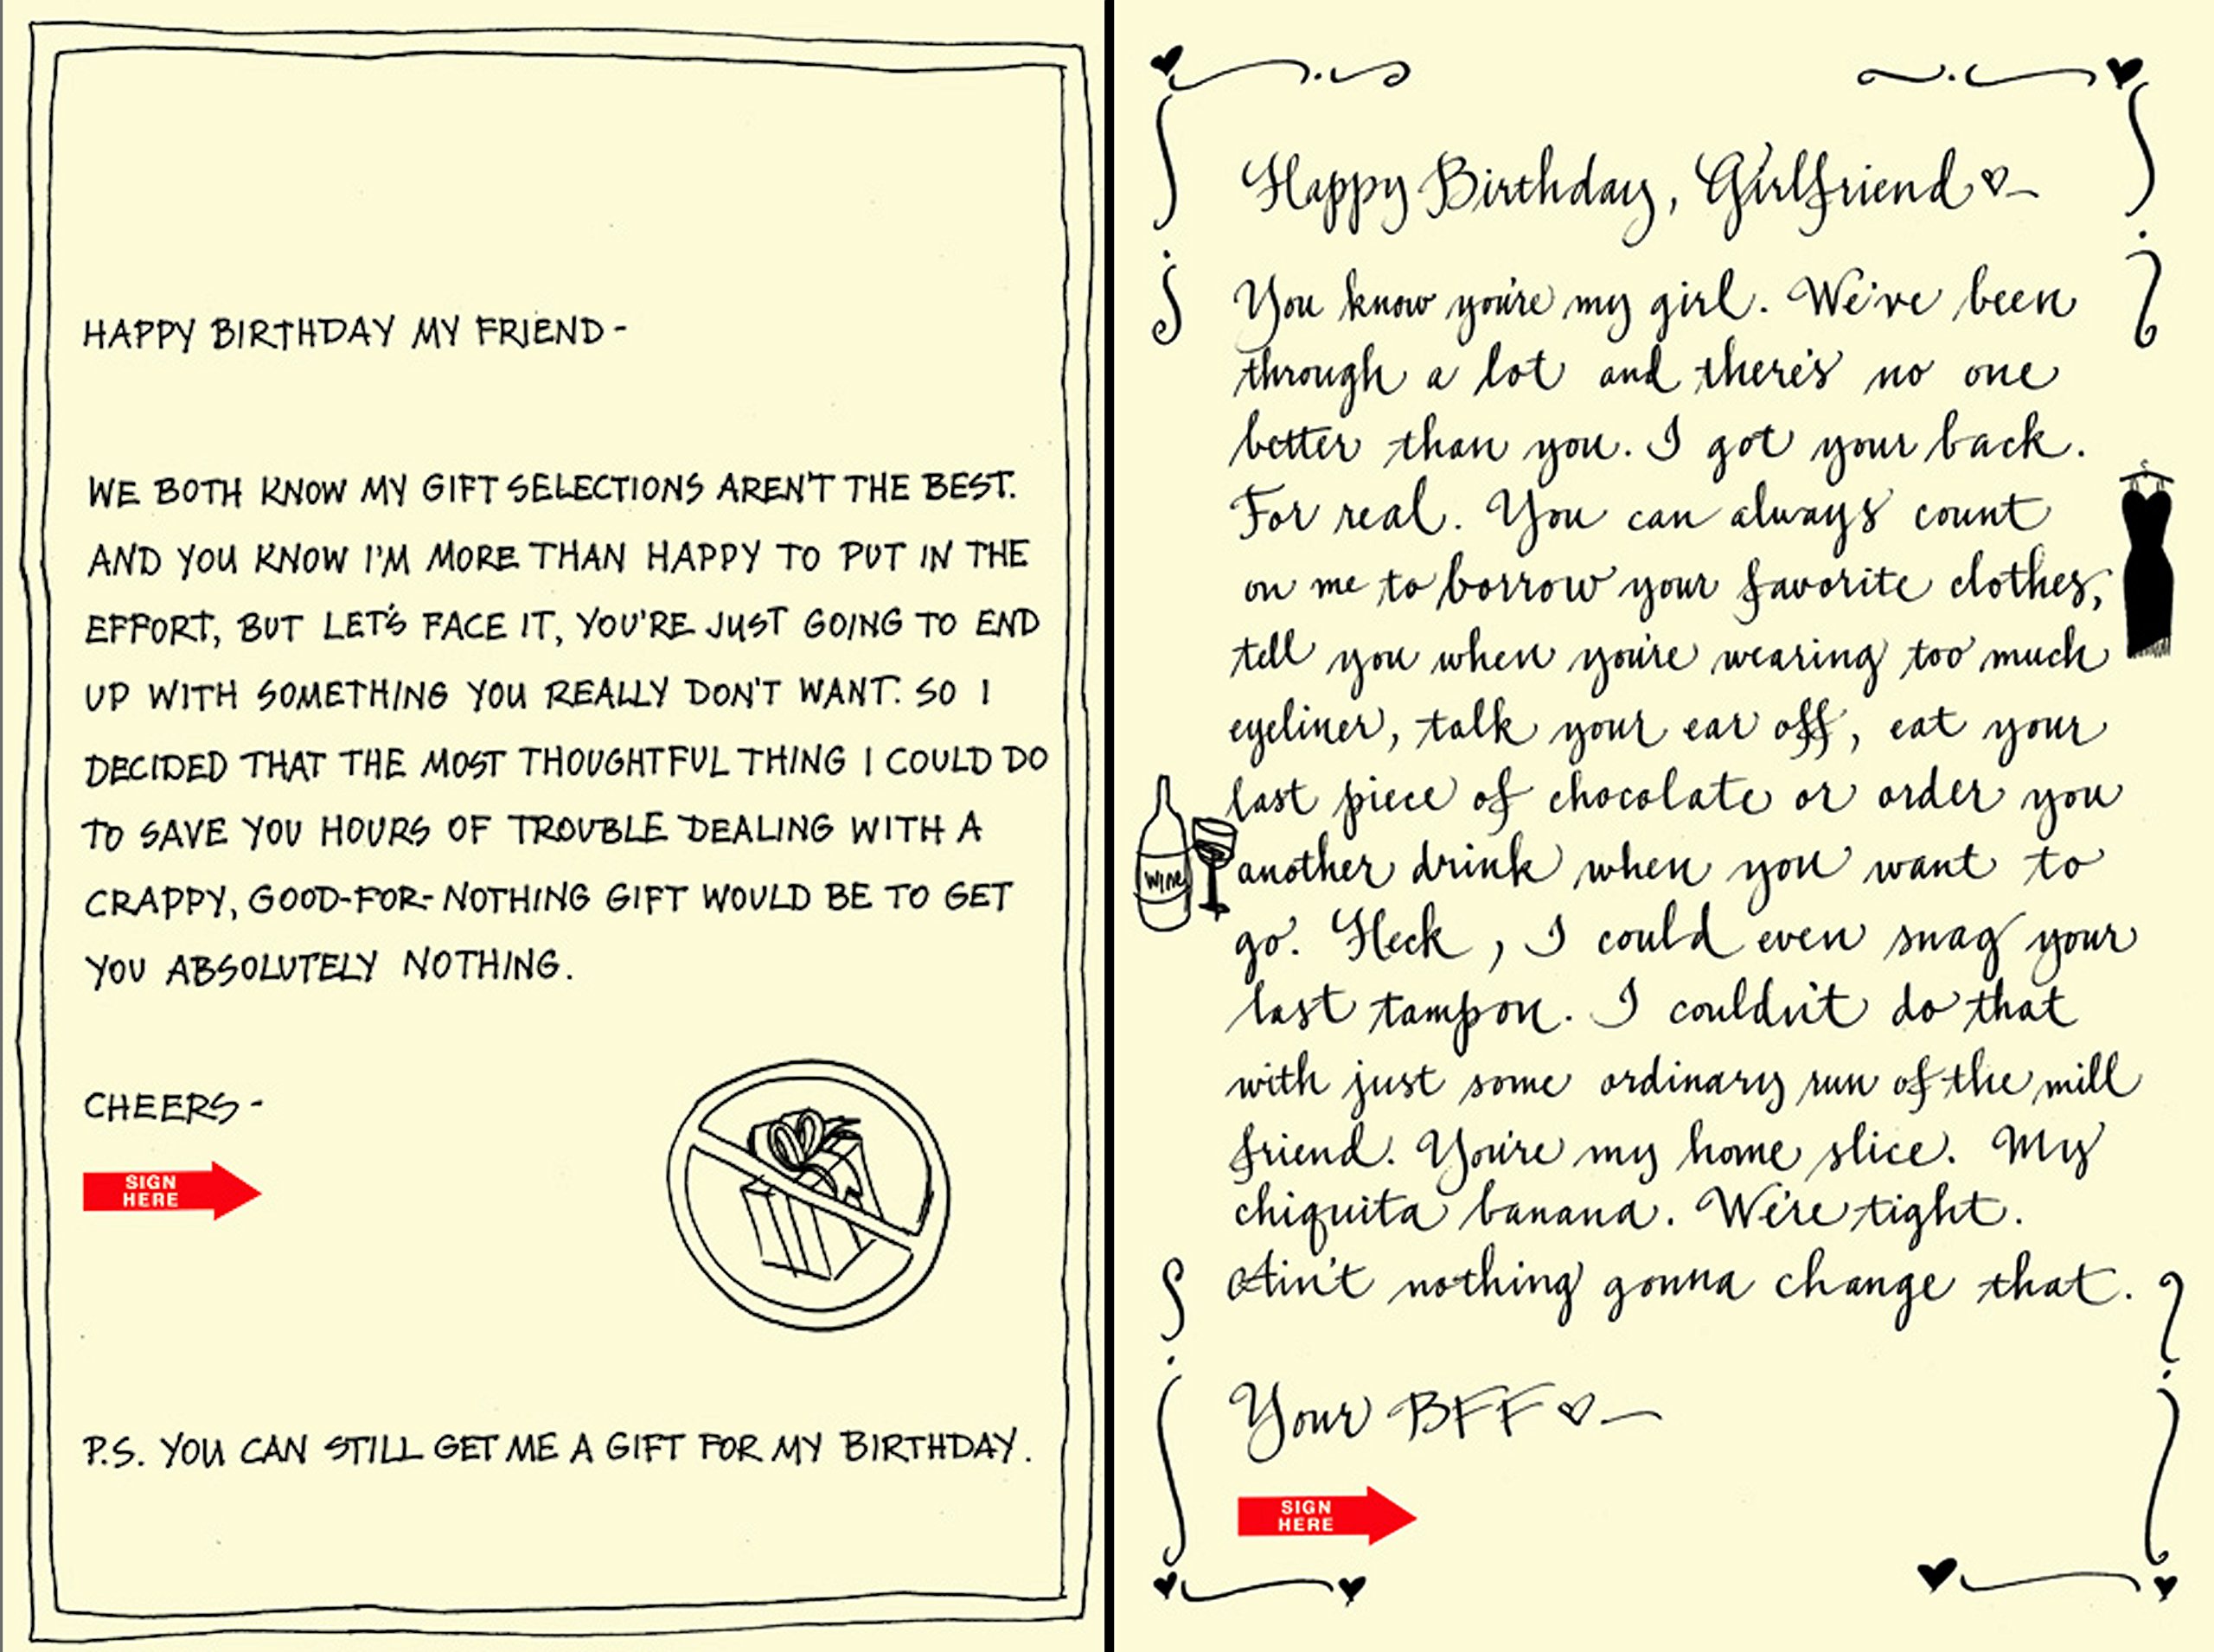 HAPPY BIRTHDAY MY FRIEND-
WE BOTH KNOW MY GIFT SELECTIONS AREN'T THE BEST.
AND YOU KNOW I'M MORE THAN HAPPY TO PUT IN THE
EFFORT, BUT LET'S FACE IT, YOU'RE JUST GOING TO END
UP WITH SOMETHING YOU REALLY DON'T WANT. SO I
DECIDED THAT THE MOST THOUGHTFUL THING I COULD DO
TO SAVE YOU HOURS OF TROUBLE DEALING WITH A
CRAPPY, GOOD-FOR-NOTHING GIFT WOULD BE TO GET
YOU ABSOLUTELY NOTHING.
CHEERS-
SIGN
HERE
P.S. YOU CAN STILL GET ME A GIFT FOR MY BIRTHDAY.
Happy Birthday, Girlfriend ♡—
You know you're my girl. We've been
through a lot and there's no one
better than you. I got your back.
For real. You can always count
on me to borrow your favorite clothes,
tell you when you're wearing too much
eyeliner, talk your ear off, eat your
last piece of chocolate or order you
WINE
another drink when you want to
go. Heck, I could even snag your
last tampon. I couldn't do that
with just some ordinary run of the mill
friend. You're my home slice. My
chiquita banana. We're tight.
Ain't nothing gonna change that.
Your BFF ♡—
SIGN
HERE